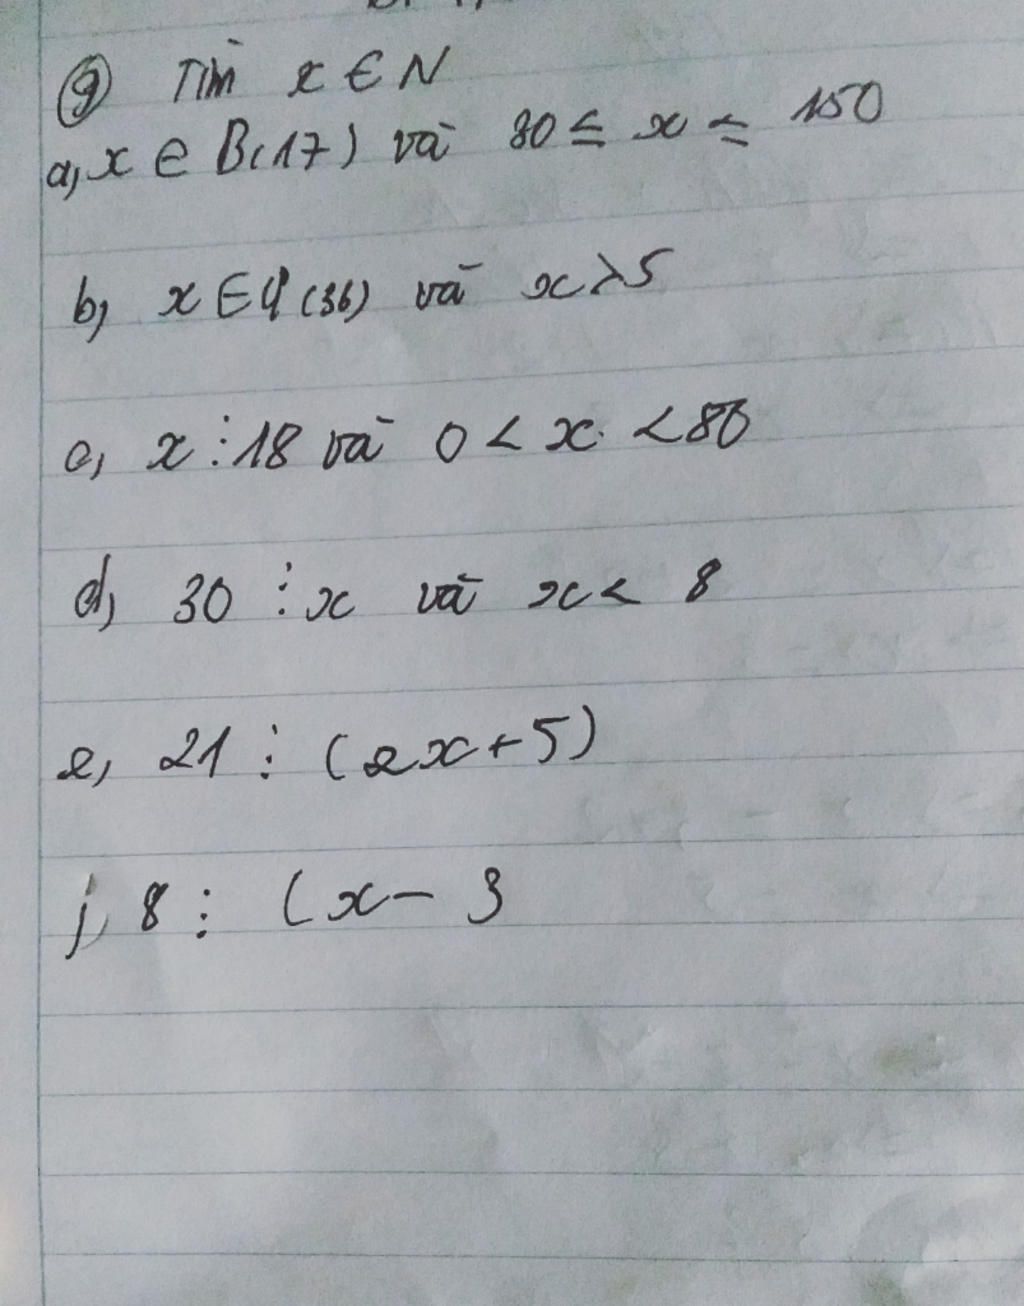 ⑨ Tìm x ∈ N
a, x ∈ B(17) và 30 ≤ x ≤ 150
b, x ∈ Ư(36) và x > 5
c, x ⋮ 18 và 0 < x < 80
d, 30 ⋮ x và x < 8
e, 21 ⋮ (2x+5)
j, 8 ⋮ (x - 3